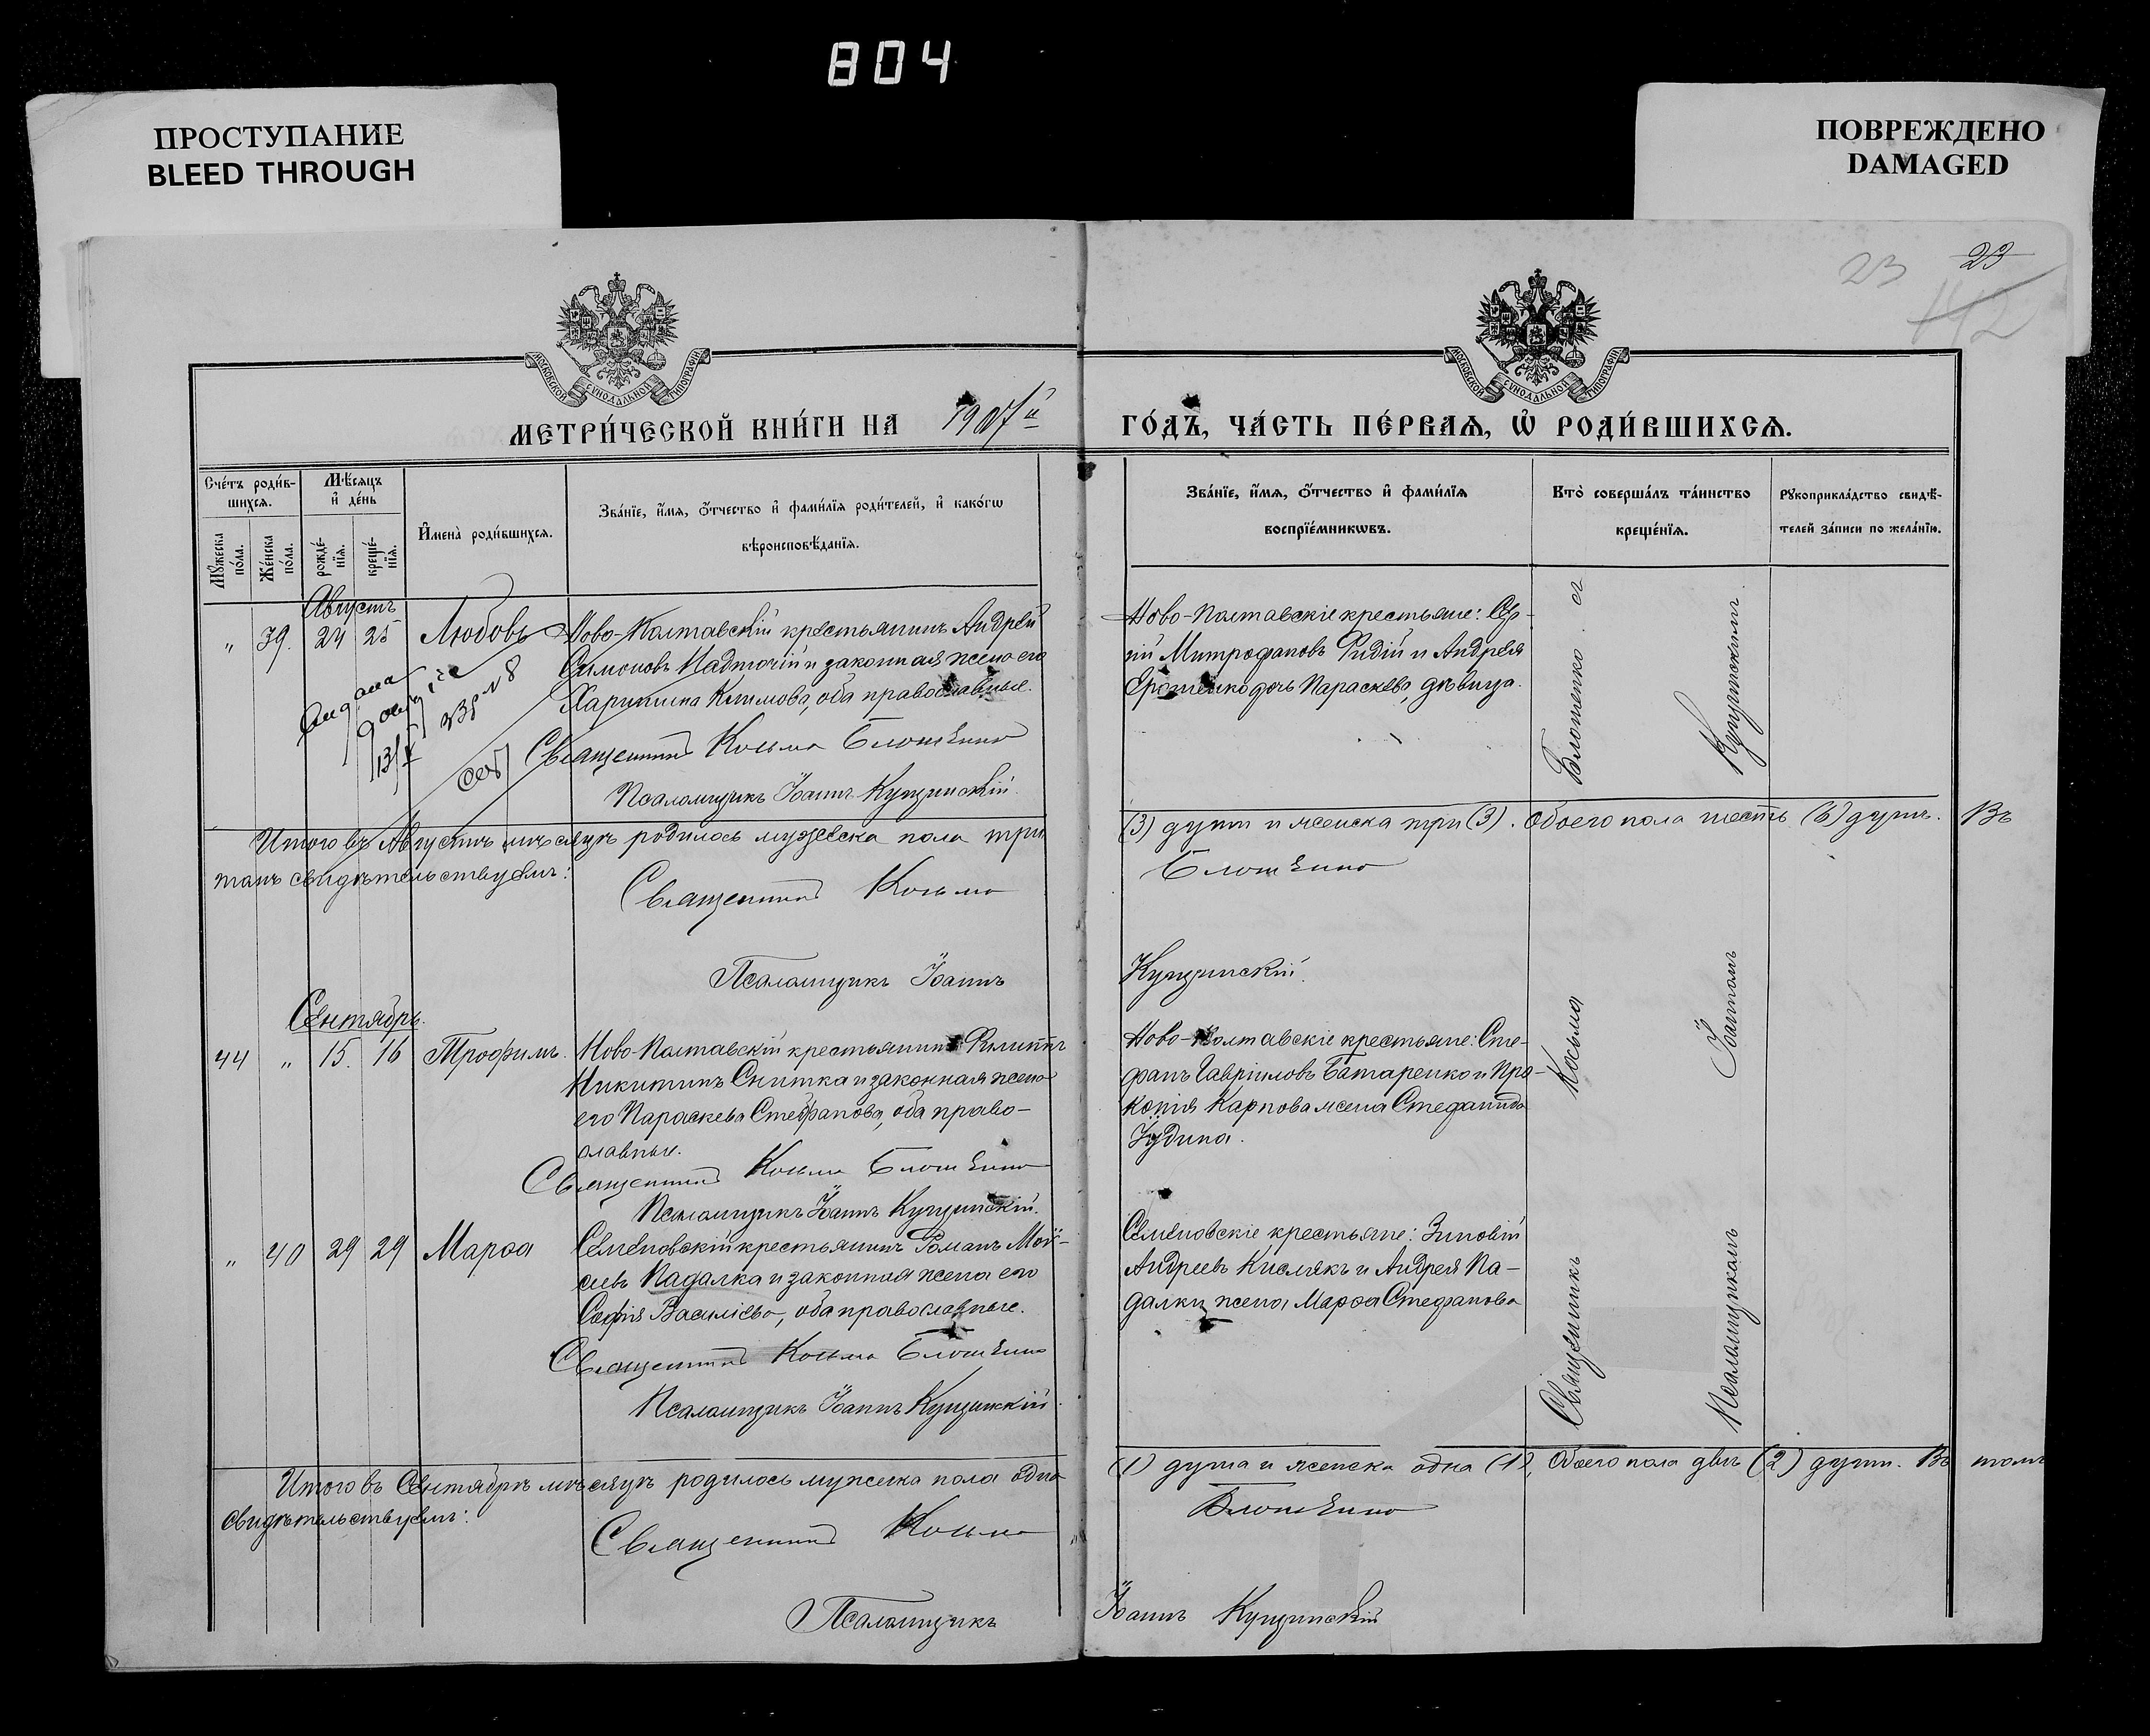 804
ПРОСТУПАНИЕ
BLEED THROUGH
ПОВРЕЖДЕНО
DAMAGED
23
23
112
МОСКОВСКОЙ СУНОДАЛЬНОЙ ТИПОГРАФІИ
МОСКОВСКОЙ СУНОДАЛЬНОЙ ТИПОГРАФІИ
МЕТРИ́ЧЕСКОЙ КНИ́ГИ НА 1907й
ГО́ДЪ, ЧА́СТЬ ПЕ́РВАѦ, Ѡ РОДИ́ВШИХСѦ.
Сче́тъ роди́в-
шихсѧ.
Му́жеска по́ла.
Же́нска по́ла.
Мѣ́сѧцъ
и҆ де́нь
рожде́-
нїѧ.
креще́-
нїѧ.
И҆мена̀ роди́вшихсѧ.
Зва́нїе, и҆́мѧ, ѻ҆́тчество и҆ фами́лїѧ роди́телей, и҆ како́гѡ
вѣроисповѣ́данїѧ.
Зва́нїе, и҆́мѧ, ѻ҆́тчество и҆ фами́лїѧ
воспрїе́мникѡвъ.
Кто̀ соверша́лъ та́инство
креще́нїѧ.
Рꙋкоприкла́дство свидѣ́-
телей за́писи по жела́нїю.
Августъ
" 39. 24 25 Любовь Ново-Полтавскій крестьянинъ Андрей
Симоновъ Надточій и законная жена его
Харитина Климова, оба православные.
Священникъ Косьма Блошенко
Псаломщикъ Іоаннъ Купчинскій.
Ново-Полтавскіе крестьяне: Сер-
гій Митрофановъ Ридій и Андрея
дочь Параскева, дѣвица.
Итого въ Августѣ мѣсяцѣ родилось мужеска пола три
(3) душъ и женска три (3). Обоего пола шесть (6) душъ. Въ
томъ свидѣтельствуемъ:
Священникъ Косьма
Блошенко
Псаломщикъ Іоаннъ
Купчинскій.
Сентябрь.
44 " 15. 16 Трофимъ. Ново-Полтавскій крестьянинъ Филиппъ
Никитинъ Снитка и законная жена
его Параскева Стефанова, оба право-
славные.
Священникъ Косьма Блошенко
Псаломщикъ Іоаннъ Купчинскій.
Ново-Полтавскіе крестьяне: Сте-
фанъ Гавріиловъ Батаренко и Про-
копія Карпова жена Стефанида
Іудина.
" 40 29 29 Марѳа Семеновскій крестьянинъ Романъ Мои-
сеевъ Падалка и законная жена его
Софія Василіева, оба православные.
Священникъ Косьма Блошенко
Псаломщикъ Іоаннъ Купчинскій.
Семеновскіе крестьяне: Зиновій
Андреевъ Кислякъ и Андрея Па-
далки жена Марѳа Стефанова
Священникъ Косьма Блошенко съ
Псаломщикомъ Іоанномъ Купчинскимъ
Итого въ Сентябрѣ мѣсяцѣ родилось мужеска пола одна
(1) душа и женска одна (1), обоего пола двѣ (2) души. Въ томъ
свидѣтельствуемъ:
Священникъ Косьма
Блошенко
Псаломщикъ
Іоаннъ Купчинскій